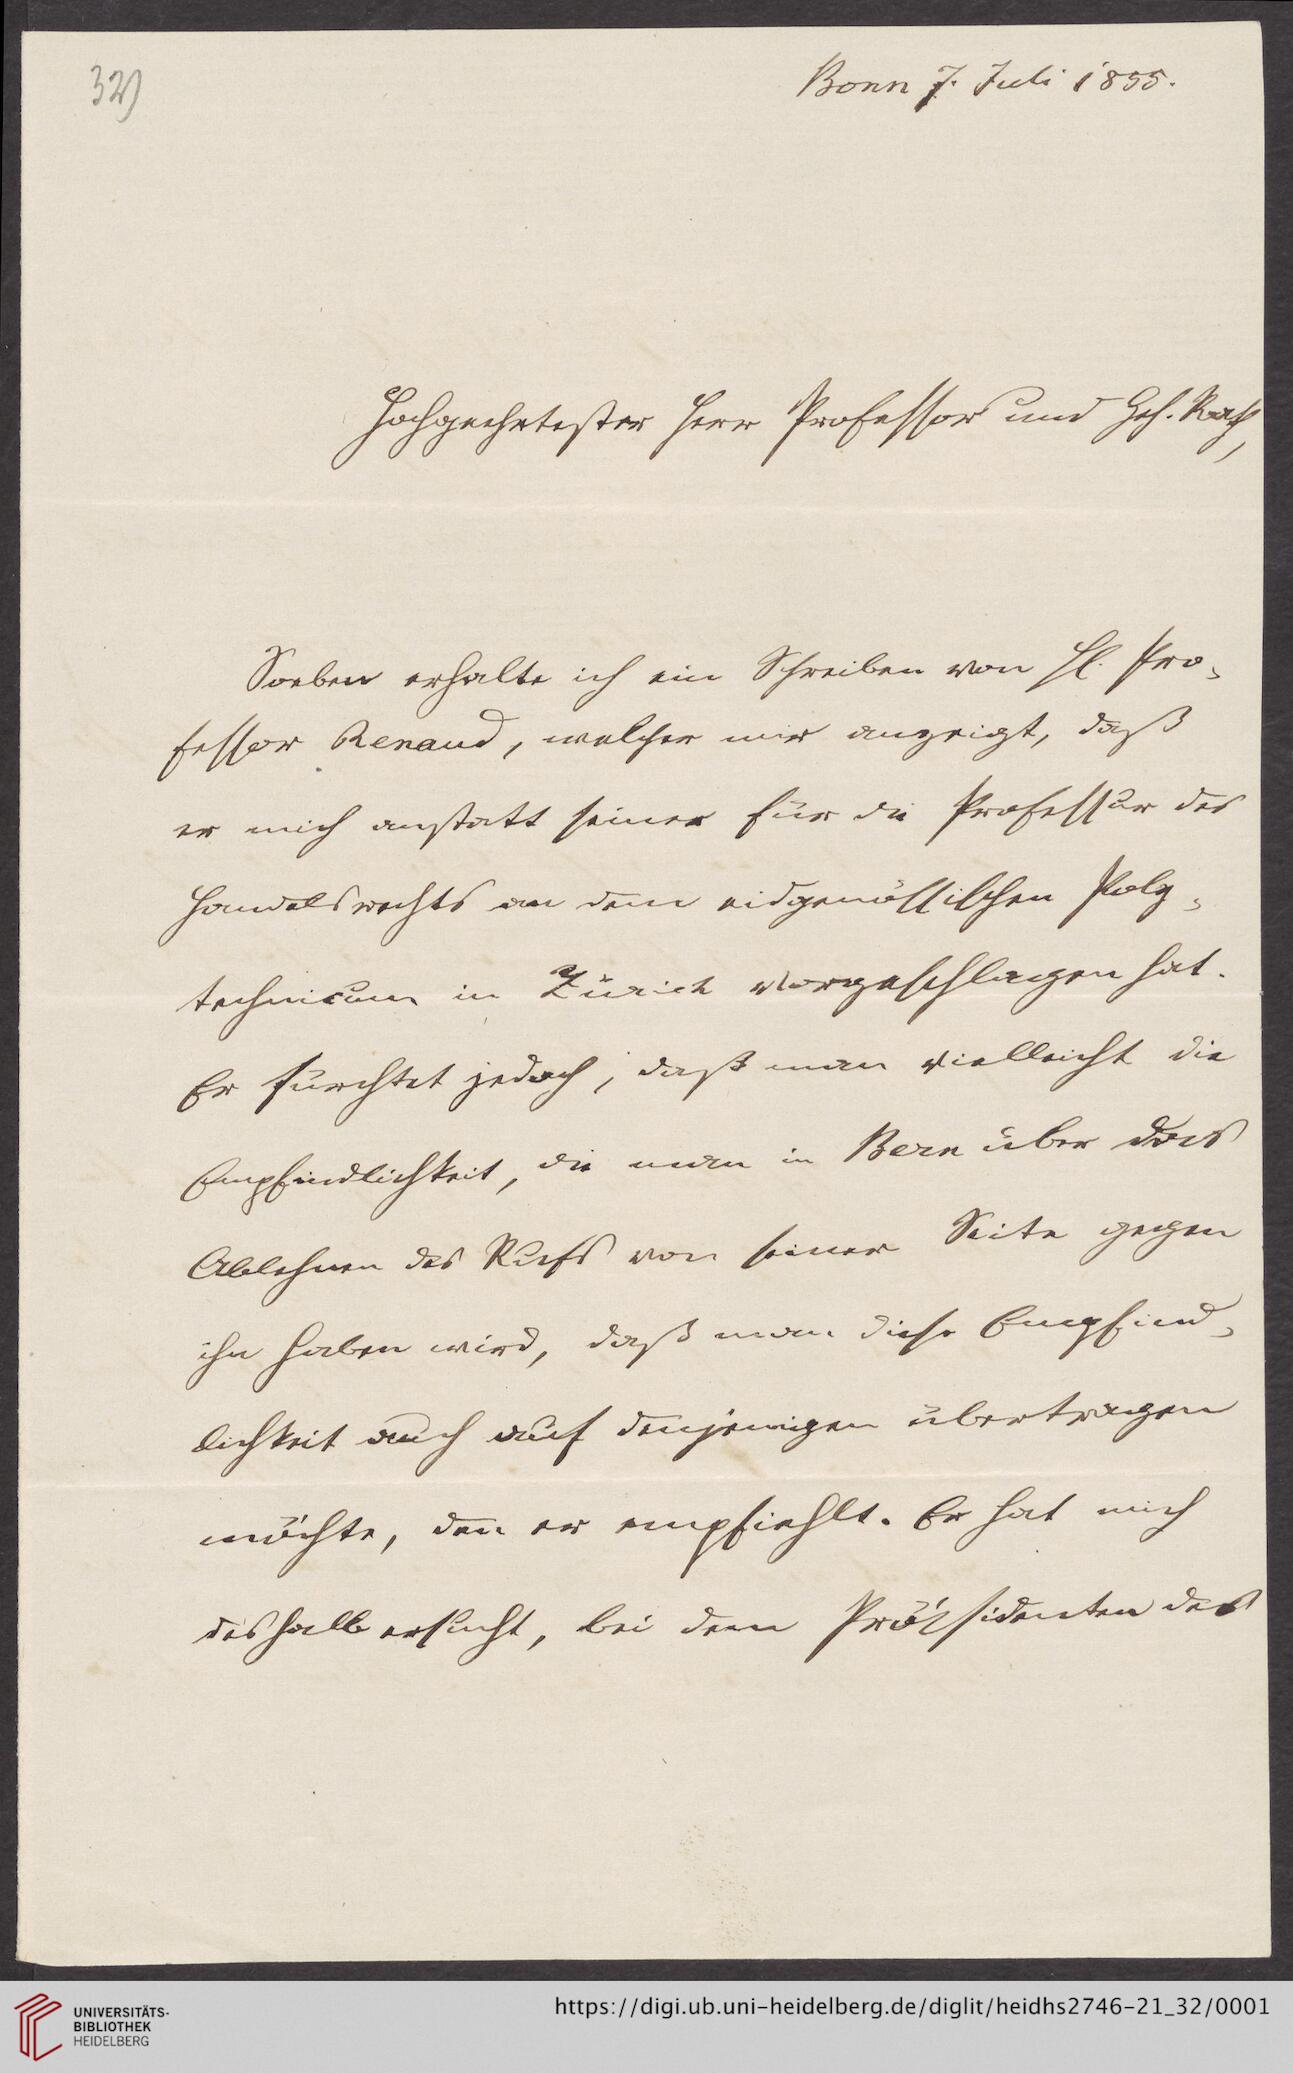 32)
Bonn 7. Juli 1855.
Hochgeehrtester Herr Professor und Geh. Rath,
Soeben erhalte ich ein Schreiben von H. Pro-
fessor Renaud, welcher mir anzeigt, daß
er mich anstatt seiner für die Professur des
Handelsrechts an dem eidgenössischen Poly-
technicum in Zürich vorgeschlagen hat.
Er fürchtet jedoch, daß man vielleicht die
Empfindlichkeit, die man in Bern über das
Ablehnen des Rufs von seiner Seite gegen
ihn haben wird, daß man diese Empfind-
lichkeit auch auf denjenigen übertragen
möchte, den er empfiehlt. Er hat mich
deshalb ersucht, bei dem Präsidenten des
UNIVERSITÄTS-
BIBLIOTHEK
HEIDELBERG
https://digi.ub.uni-heidelberg.de/diglit/heidhs2746-21_32/0001